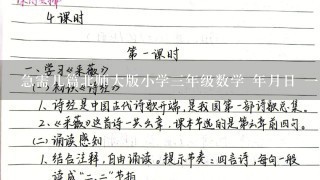 4课时
第一课时
一、学习《采薇》
急需几篇北师大版小学三年级数学 年月日 一
《诗经》
1.诗经是中国古代诗歌开端,是我国第一部诗歌总集。
2.《采薇》这首诗一共六章,课本节选的是第六章前四句。
(二)诵读感知
1.结合注释,自由诵读。提示节奏:四言诗,每句一般
读成“二、二”节拍